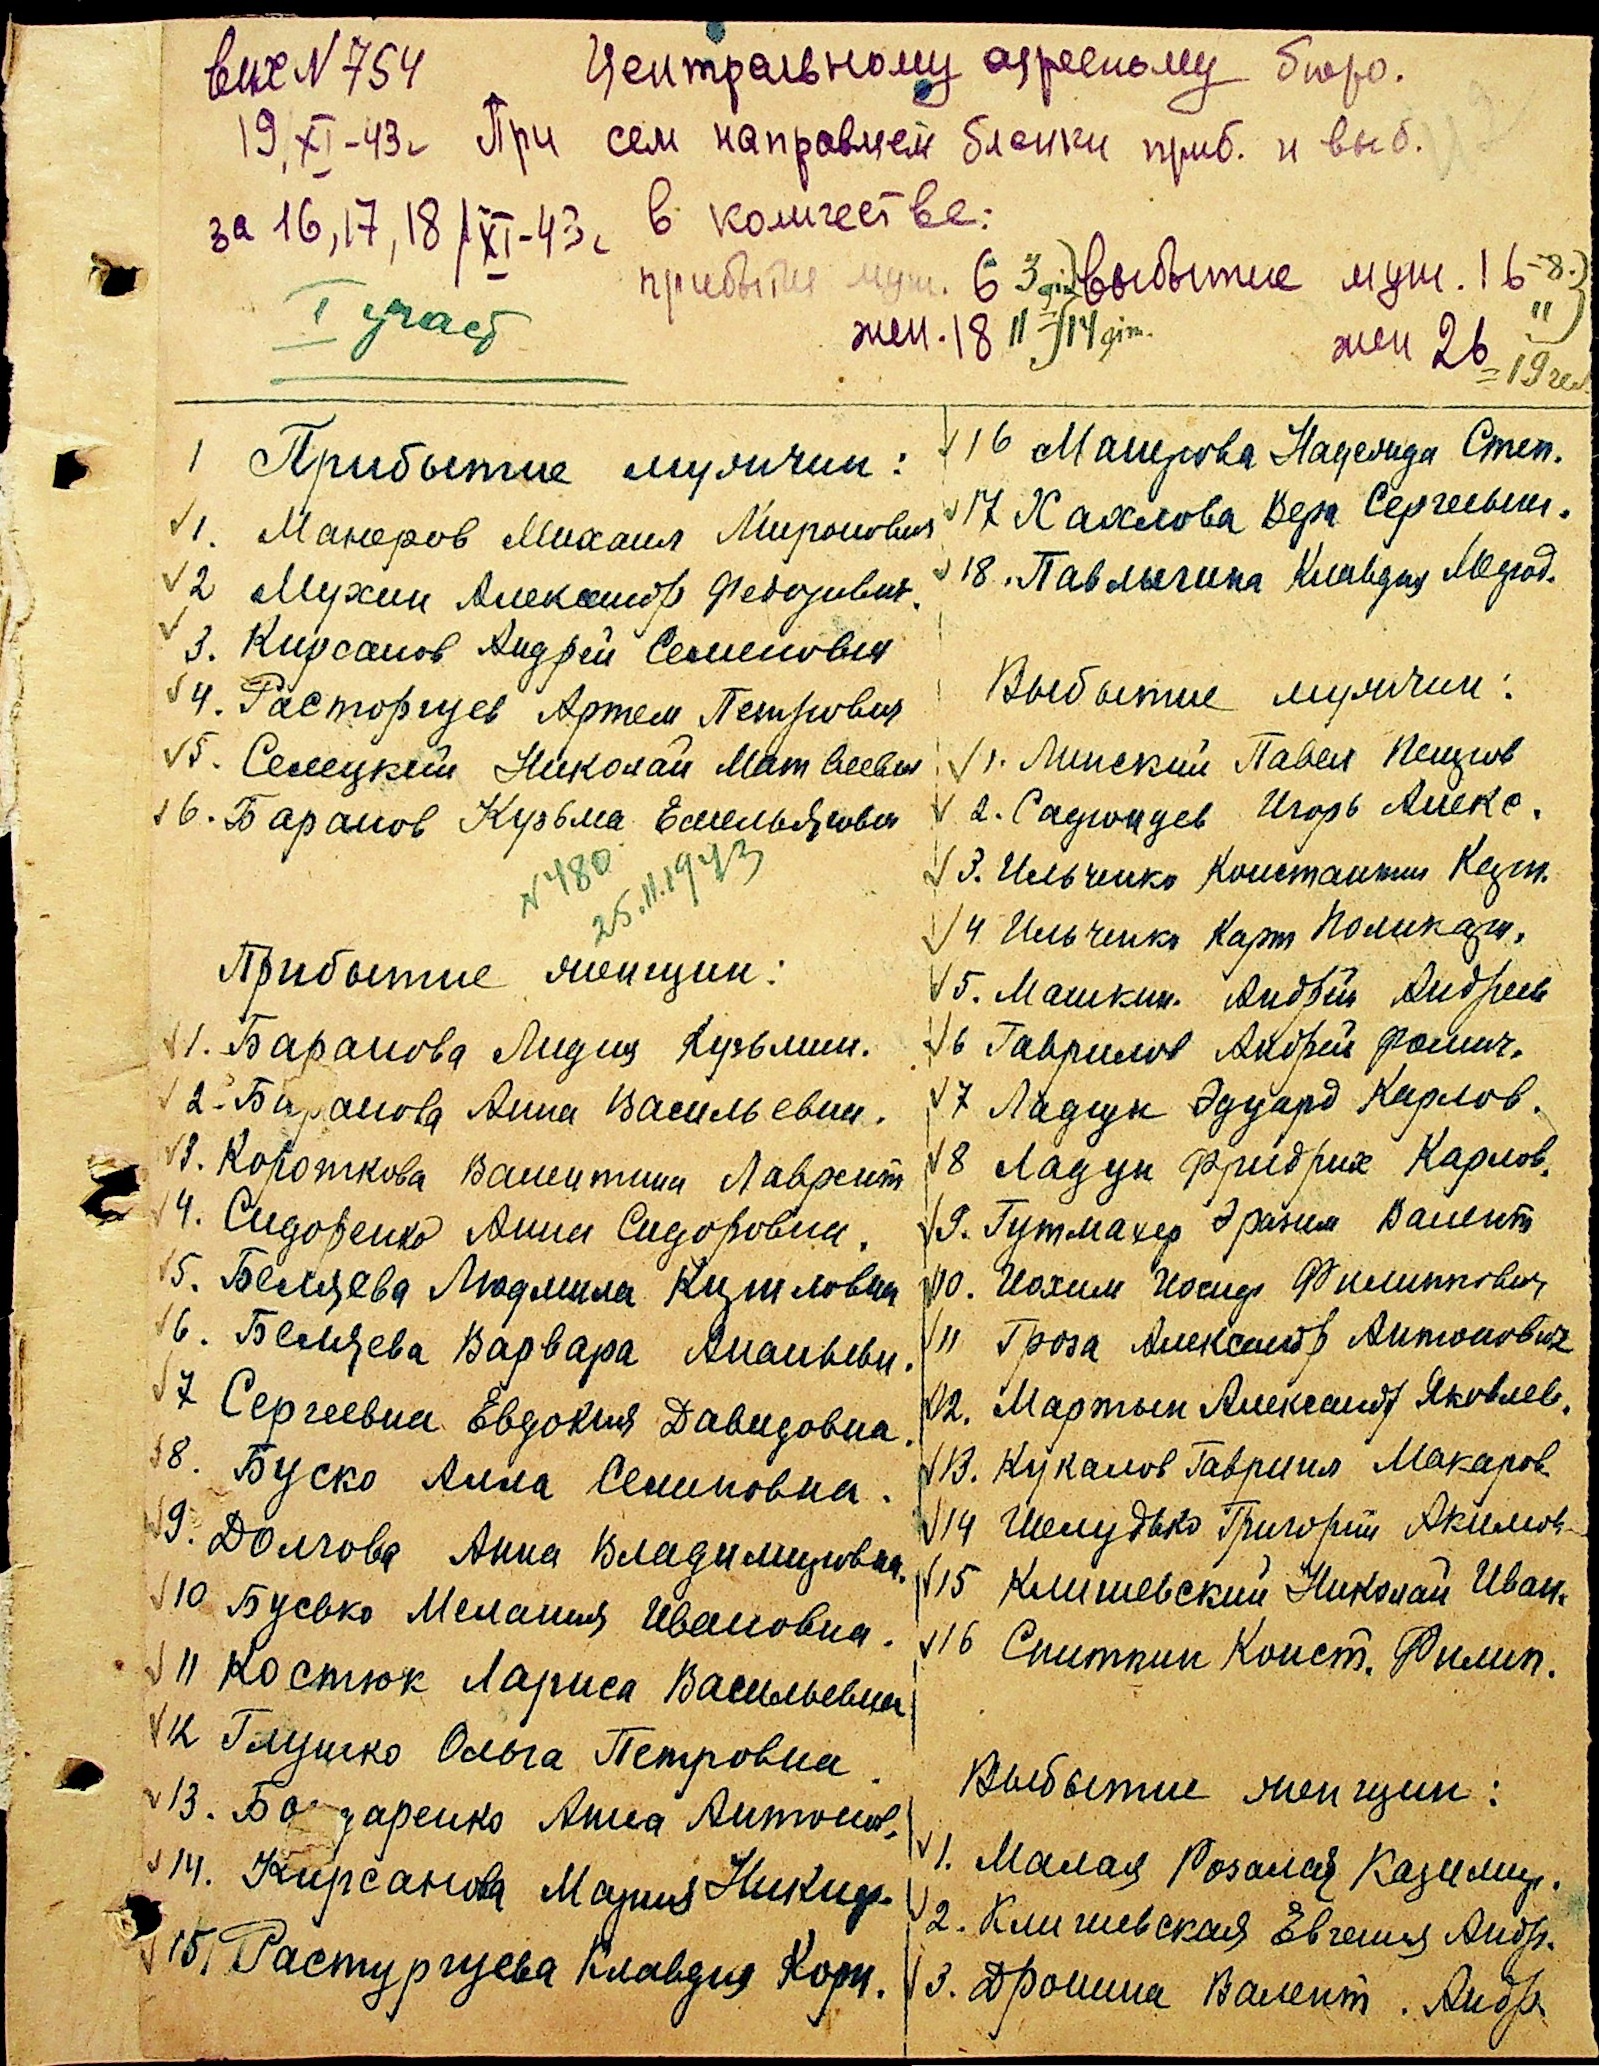 вих N 754 Центральному адресному бюро.
19/XI-43г При сем направляем бланки приб. и выб.
за 16, 17, 18/XI-43г в количестве:
прибытие муж. 6 3 выбытие муж. 16 - 8.
жен. 18 11 14 жен 26 11
= 19 чел
I участ
1 Прибытие мужчин:
1. Манеров Михаил Миронович
2 Мухин Александр Федорович.
3. Кирсанов Андрей Семенович
4. Расторгуев Артем Петрович
5. Селецкий Николай Матвеевич
6. Баранов Кузьма Емельянович
N 480
25.11.1943
Прибытие женщин:
1. Баранова Лидия Кузьмин.
2. Баранова Анна Васильевн.
3. Короткова Валентина Лаврент
4. Сидоренко Анна Сидоровна.
5. Беляева Людмила Кириловна
6. Беляева Варвара Ананьевн.
7 Сергеевна Евдокия Давидовна.
8. Буско Алла Семеновна.
9. Долчова Анна Владимировна.
10 Бусько Мелания Ивановна.
11 Костюк Лариса Васильевна
12 Глушко Ольга Петровна.
13. Бондаренко Анна Антонов.
14. Кирсанова Мария Никиф.
15. Растургуева Клавдия Корн.
16 Манерова Надежда Степ.
17 Хахлова Вера Сергеевн.
18. Павлычина Клавдия Мефод.
Выбытие мужчин:
1. Линский Павел Петров
2. Садгонцев Игорь Алекс.
3. Ильченко Константин Карп.
4 Ильченко Карп Поликарп.
5. Машкин. Андрей Андреев
6 Гаврилов Андрей Фомич.
7 Ладгун Эдуард Карлов.
8 Ладгун Фридрих Карлов.
9. Гутмахер Эразим Валент
10. Иохим Иосиф Филиппович
11 Гроза Александр Антонович
12. Мартын Александр Яковлев.
13. Кукалов Гавриил Макаров
14 Шелудько Григорий Акимов
15 Клишевский Николай Иван.
16 Снитпин Конст. Филип.
Выбытие женщин:
1. Малая Розалия Казимир.
2. Клишевская Евгения Андр.
3. Дронина Валент. Андр